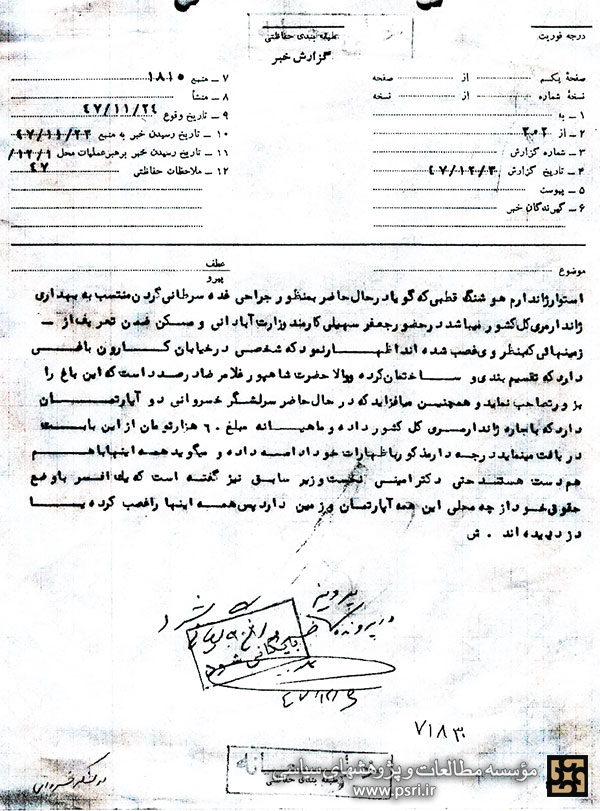 درجه فوریت
طبقه بندی حفاظتی
گزارش خبر
صفحه یکم از صفحه
نسخه شماره از نسخه
۱ ـ به
۲ ـ از ۲۰۲
۳ ـ شماره گزارش
۴ ـ تاریخ گزارش ۴۷/۱۲/۳
۵ ـ پیوست
۶ ـ گیرندگان خبر
۷ ـ منبع ۱۸۱۵
۸ ـ منشأ
۹ ـ تاریخ وقوع ۴۷/۱۱/۲۴
۱۰ ـ تاریخ رسیدن خبر به منبع ۴۷/۱۱/۲۳
۱۱ ـ تاریخ رسیدن خبر برهبرعملیات محل ۱۲/۱/
۱۲ ـ ملاحظات حفاظتی ۴۷
موضوع
عطف
پیرو
استوار ژاندارم هوشنگ قطبی که گویا در حال حاضر بمنظور جراحی غده سرطانی گردن منتسب به بهداری
ژاندارمری کل کشور میباشد در حضور جعفر سهیلی کارمند وزارت آبادانی و مسکن ضمن تعریف از ـ
زمینهائی که بنظر وی غصب شده اند اظهار نمود که شخصی در خیابان کارون باغی
دارد که تقسیم بندی و ساختمان کرده و والا حضرت شاهپور غلامرضا در صدد است که این باغ را
بزور تصاحب نماید و همچنین میافزاید که در حال حاضر سرلشگر خسروانی دو آپارتمان
دارد که باجاره ژاندارمری کل کشور داده و ماهیانه مبلغ ۶۰ هزار تومان از این بابت
دریافت مینماید درجه دار مذکور باظهارات خود ادامه داده و میگوید همه اینها باهم
هم دست هستند حتی دکتر امینی نخست وزیر سابق نیز گفته است که یک افسر باوضع
حقوقی خود از چه محلی این همه آپارتمان و زمین دارد پس همه اینها را غصب کرده یا
دزدیده اند . ش
در پرونده
بایگانی شود
۴۷/۱۲/۶
۷۱۸۳۰
طبقه بندی حفاظتی
مؤسسه مطالعات و پژوهشهای سیاسی
www.psri.ir